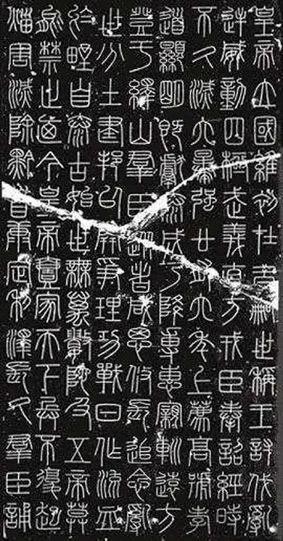 皇帝立國維初在昔嗣世稱王討伐亂
逆威動四極武義直方戎臣奉詔經時
不久滅六暴強廿有六年上薦高號孝
道顯明既獻泰成乃降專惠寴軔遠方
登于繹山羣臣從者咸思攸長追念亂
世分土建邦以開爭理功戰日作流血
於野自泰古始世無萬數陀及五帝莫
能禁止廼今皇帝壹家天下兵不復起
災害滅除黔首康定利澤長久羣臣誦